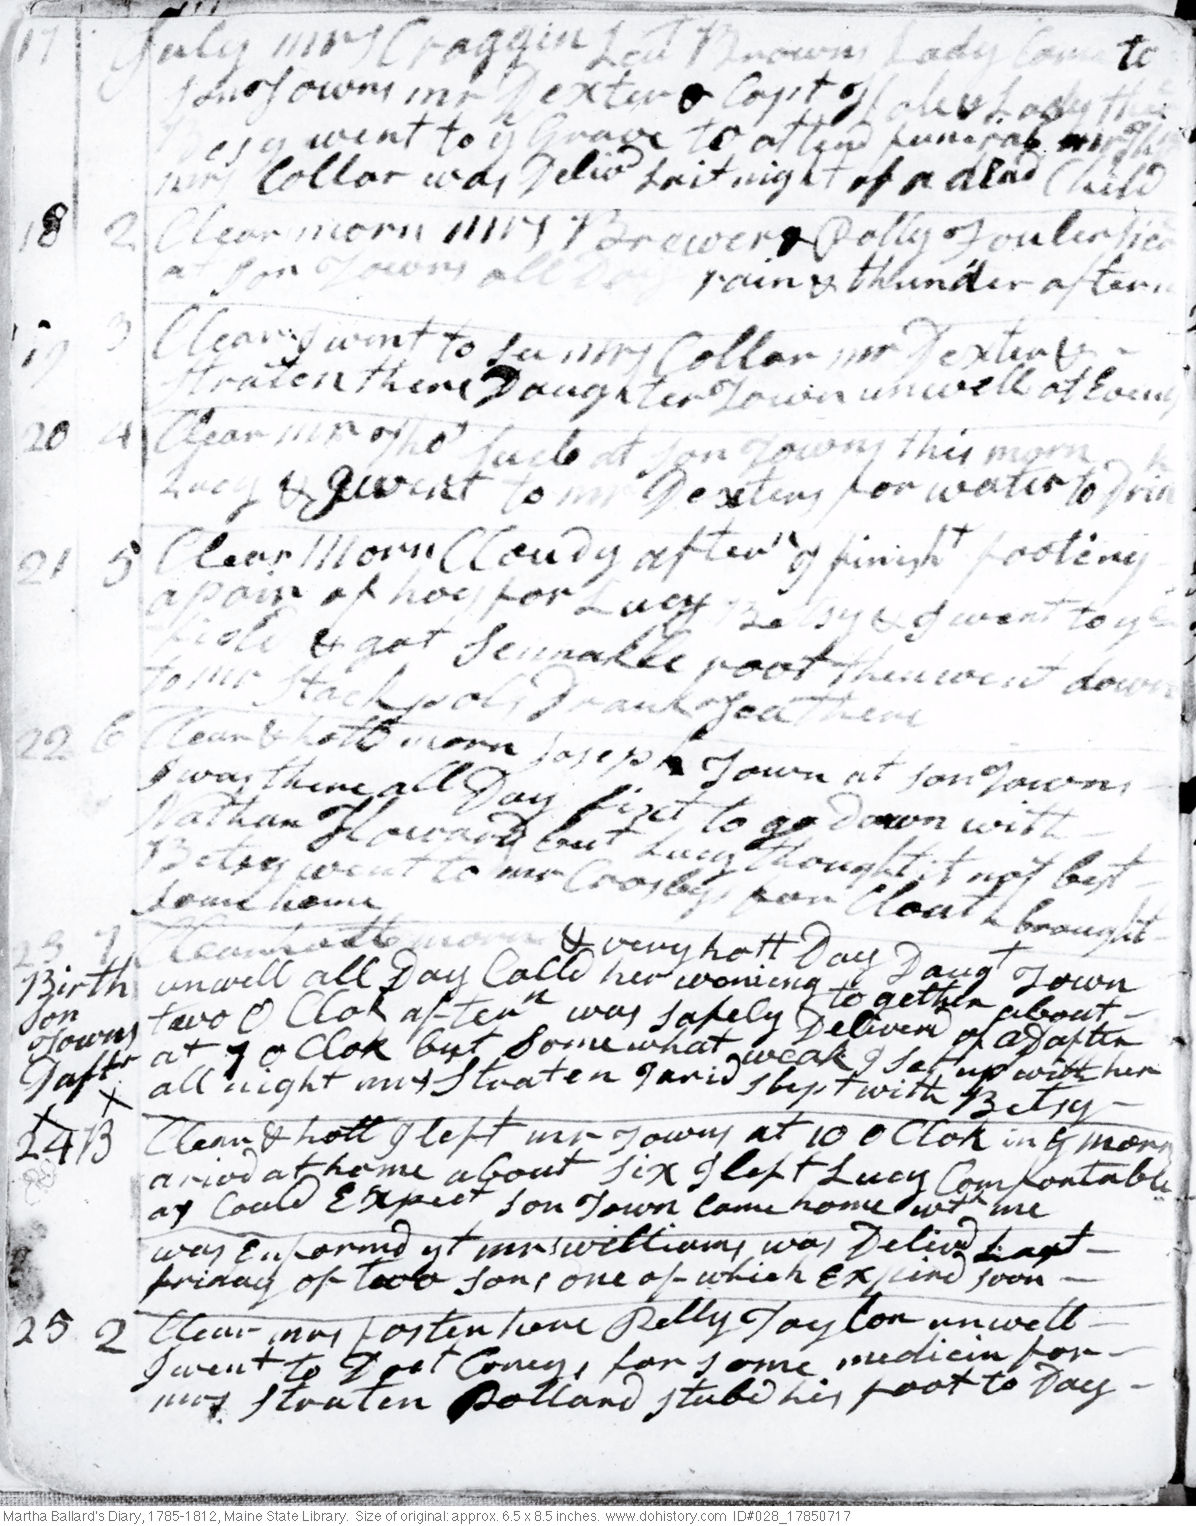 17 July mrs Craggin Lt Browns Lady Came to
son Towns mr Dexter & Capt Coles Lady this
Betsy went to y Grave to attend funeral
mrs Collar was Delivd Last night of a dead Child
18 2 Clear morn mrs Brewer & Polly Fouler here
at son Towns all Day rain & thunder aftern
19 3 Clear I went to see mrs Collar mr Dexter & -
Straten there Daughter Town unwell at Evng
20 4 Clear mr Thos at son Towns this morn
Lucy & I went to mr Dexters for water to Drink
21 5 Clear Morn Cloudy aftern I finisht footing
a pair of hoes for Lucy Betsy & I went to ye
field & got Sennakle root then went down
to mr Stackpols Drank Tea there
22 6 Clear & hott morn Joseph Town at son Towns -
I was there all Day fixt to go Down with -
Nathan Howard but Lucy thought it not best -
Betsy went to mr Crosbys for Cloath brought -
some home
23 7 Clear hott morn & very hott Day Daugt Town
Birth unwell all Day Calld her women together about -
son two O Clok aftern was safely Deliverd of a Dafter
Towns at 7 O Clok but Somewhat weak I set up with her
Daftr all night mrs Straten Tarid slept with Betsy -
X X
24 B Clear & hott I left mr Towns at 10 O Clok in y morn
arivd at home about six I left Lucy Comfortable
as Could Expect son Town came home wth me
was Enformd yt mrs williams was Delivd Last -
friday of two sons one of which Expird soon -
25 2 Clear mrs foster here Polly Taylor unwell -
I went to Doct Conys for some medicin for -
mrs Straten Pollard stubd his foot to Day -
Martha Ballard's Diary, 1785-1812, Maine State Library. Size of original: approx. 6.5 x 8.5 inches. www.dohistory.com ID#028_17850717